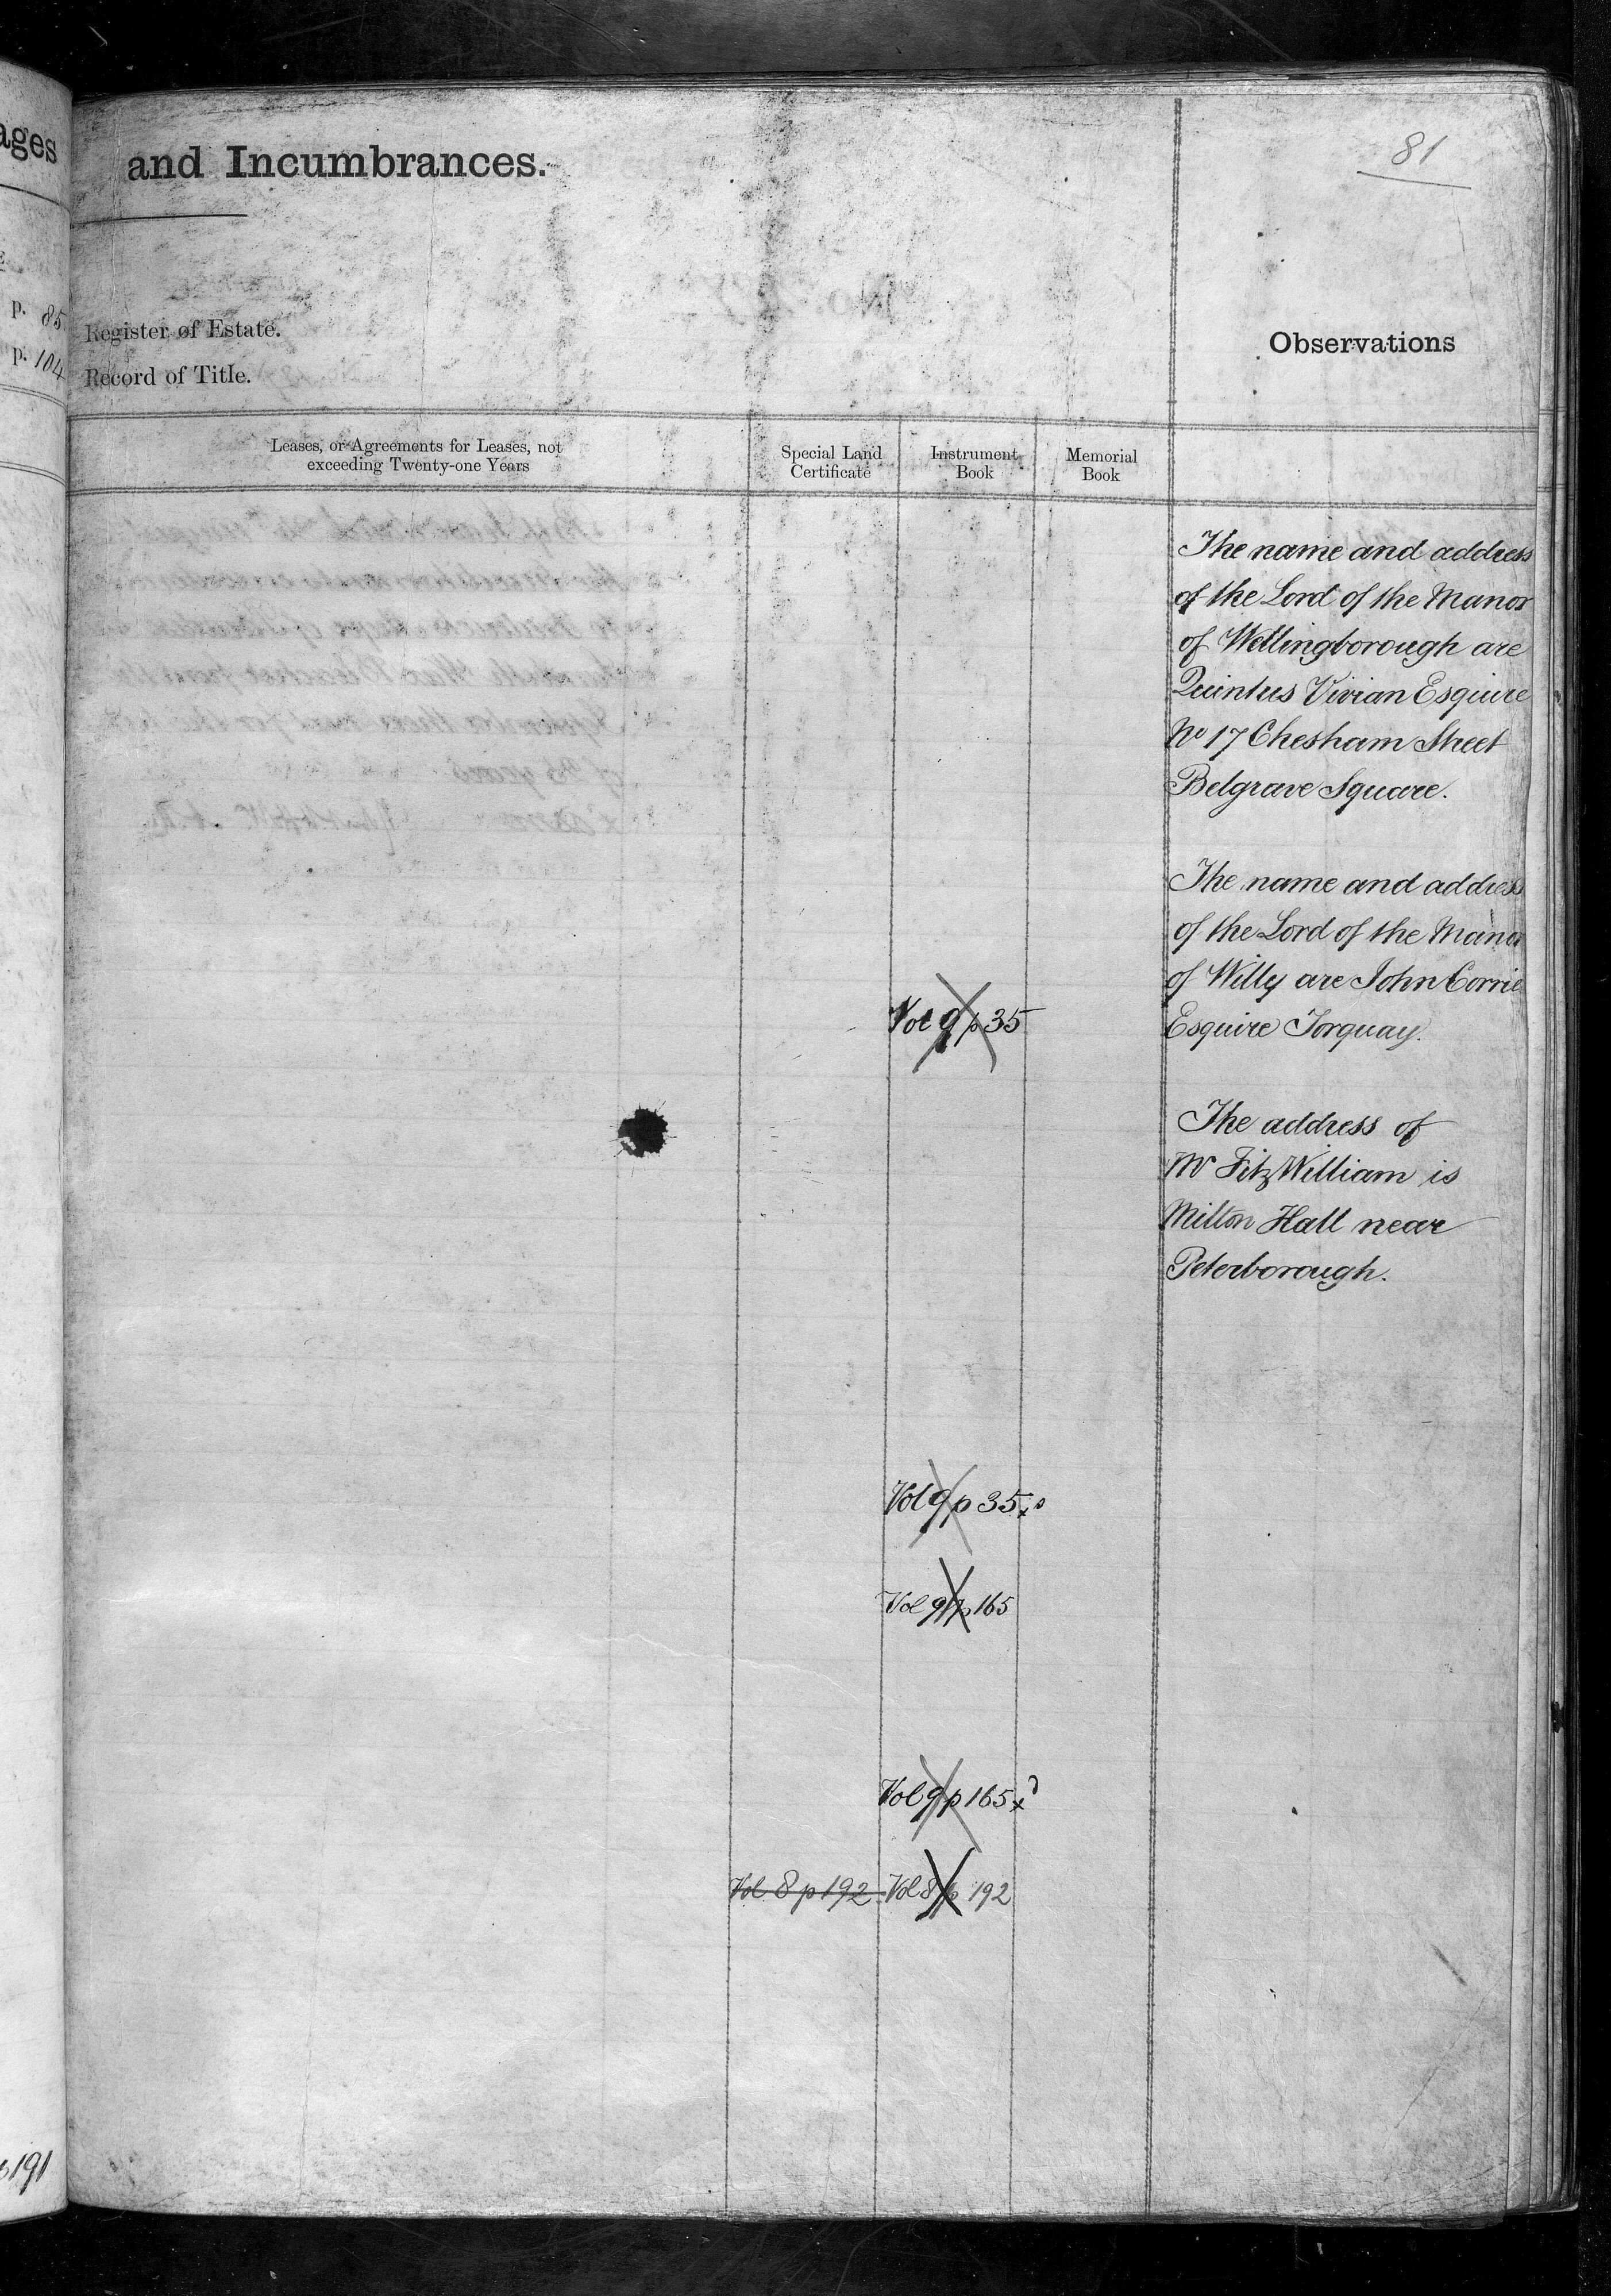 ages
p. 85
p. 104
p 191
and Incumbrances.
81
Register of Estate.
Record of Title.
Observations
Leases, or Agreements for Leases, not
exceeding Twenty-one Years
Special Land
Certificate
Instrument
Book
Memorial
Book
The name and address
of the Lord of the Manor
of Wellingborough are
Quintus Vivian Esquire
No 17 Chesham Street
Belgrave Square.
The name and address
of the Lord of the Manor
of Wilby are John Corrie
Esquire Torquay.
Vol 9 p 35
The address of
Mr FitzWilliam is
Milton Hall near
Peterborough.
Vol 9 p 35
Vol 9 p 165
Vol 9 p 165
Vol 8 p 192 Vol 8 p 192